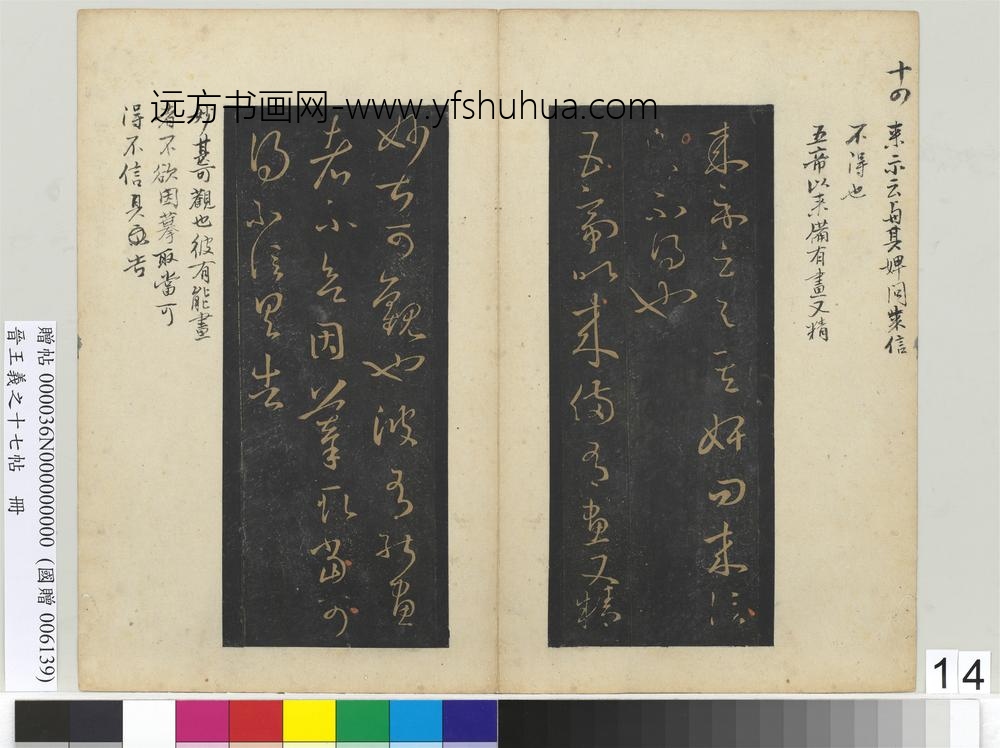 远方书画网-www.yfshuhua.com
十四
來示云與其婢問來信
不得也
五帝以來備有畫又精
來示云與其婢問來信
不得也
五帝以來備有畫又精
妙甚可觀也彼有能畫
者不欲因摹取當可
得不信具告
妙甚可觀也彼有能畫
者不欲因摹取當可
得不信具告
贈帖 000036N000000000 (國贈 006139)
晉王羲之十七帖 冊
14